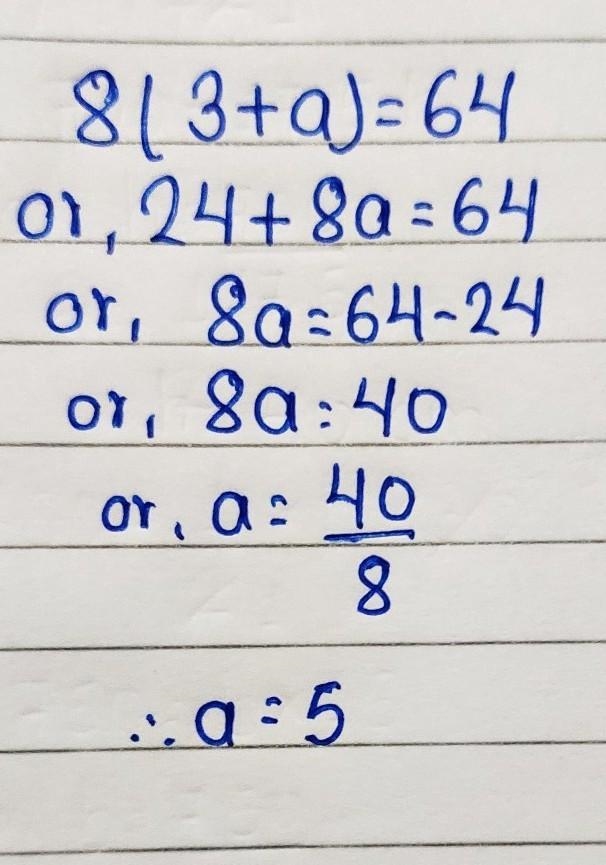 8(3+a)=64
or, 24+8a=64
or, 8a=64-24
or, 8a=40
or, a= 40/8
∴ a=5